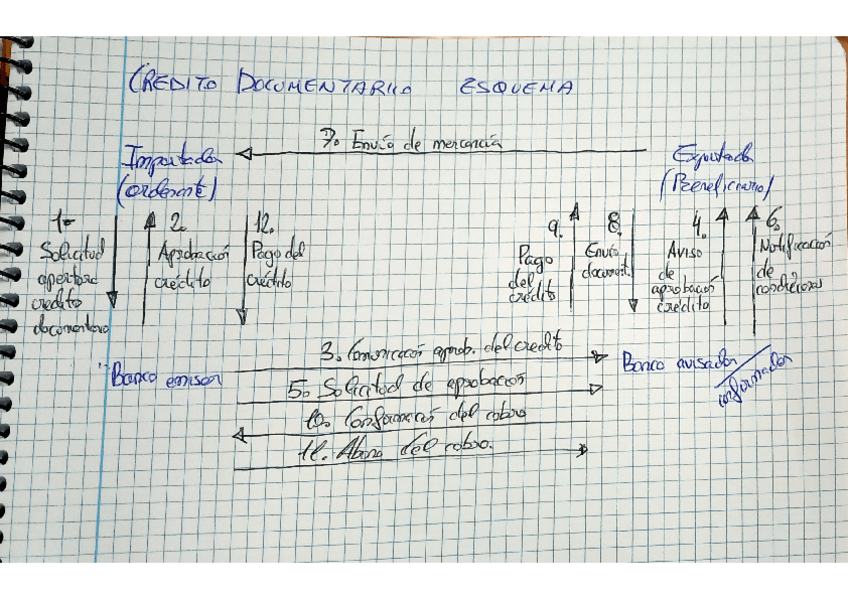 CREDITO DOCUMENTARIO ESQUEMA
7. Envío de mercancía
Importador
(ordenante)
Exportador
(Beneficiario)
1-
Solicitud
apertura
credito
documentario
2.
Aprobación
crédito
12.
Pago del
crédito
9.
Pago
del
crédito
8.
Envío
document.
4.
Aviso
de
aprobación
crédito
6.
Notificación
de
condiciones
3. Comunicación aprob. del credito
Banco emisor
Banco avisador
confirmador
5. Solicitud de aprobación
10. Confirmación del cobro
11. Abono del cobro.